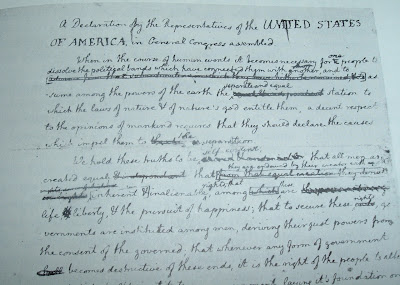 A Declaration by the Representatives of the UNITED STATES
OF AMERICA, in General Congress assembled.
When in the course of human events it becomes necessary for one people to
dissolve the political bands which have connected them with another, and to
assume among the powers of the earth the separate and equal station to
which the laws of nature & of nature's god entitle them, a decent respect
to the opinions of mankind requires that they should declare the causes
which impel them to the separation.
We hold these truths to be self evident that all men are
created equal & that they are endowed by their creator with
inherent & inalienable rights; that among these are
life & liberty, & the pursuit of happiness; that to secure these rights, go
vernments are instituted among men, deriving their just powers from
the consent of the governed; that whenever any form of government
becomes destructive of these ends, it is the right of the people to alter
foundation on